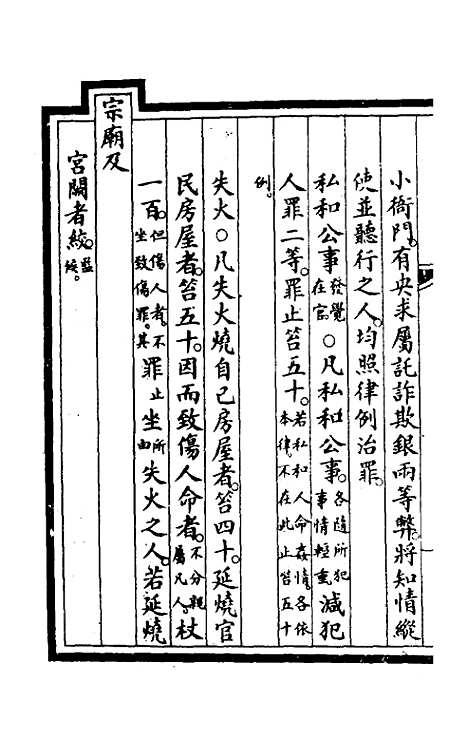 小衙門。有央求屬託詐欺銀兩等弊。將知情縱
使並聽行之人。均照律例治罪。
私和公事發覺在官○凡私和公事。各隨所犯事情輕重減犯
人罪二等。罪止笞五十。若私和人命姦情。各依本律。不在此止笞五十
例。
失火○凡失火燒自己房屋者。笞四十。延燒官
民房屋者。笞五十。因而致傷人命者。不分親屬凡人。杖
一百。但傷人者。不坐致傷罪。其罪止坐所由失火之人。若延燒
宗廟及
宮闕者絞。監候。